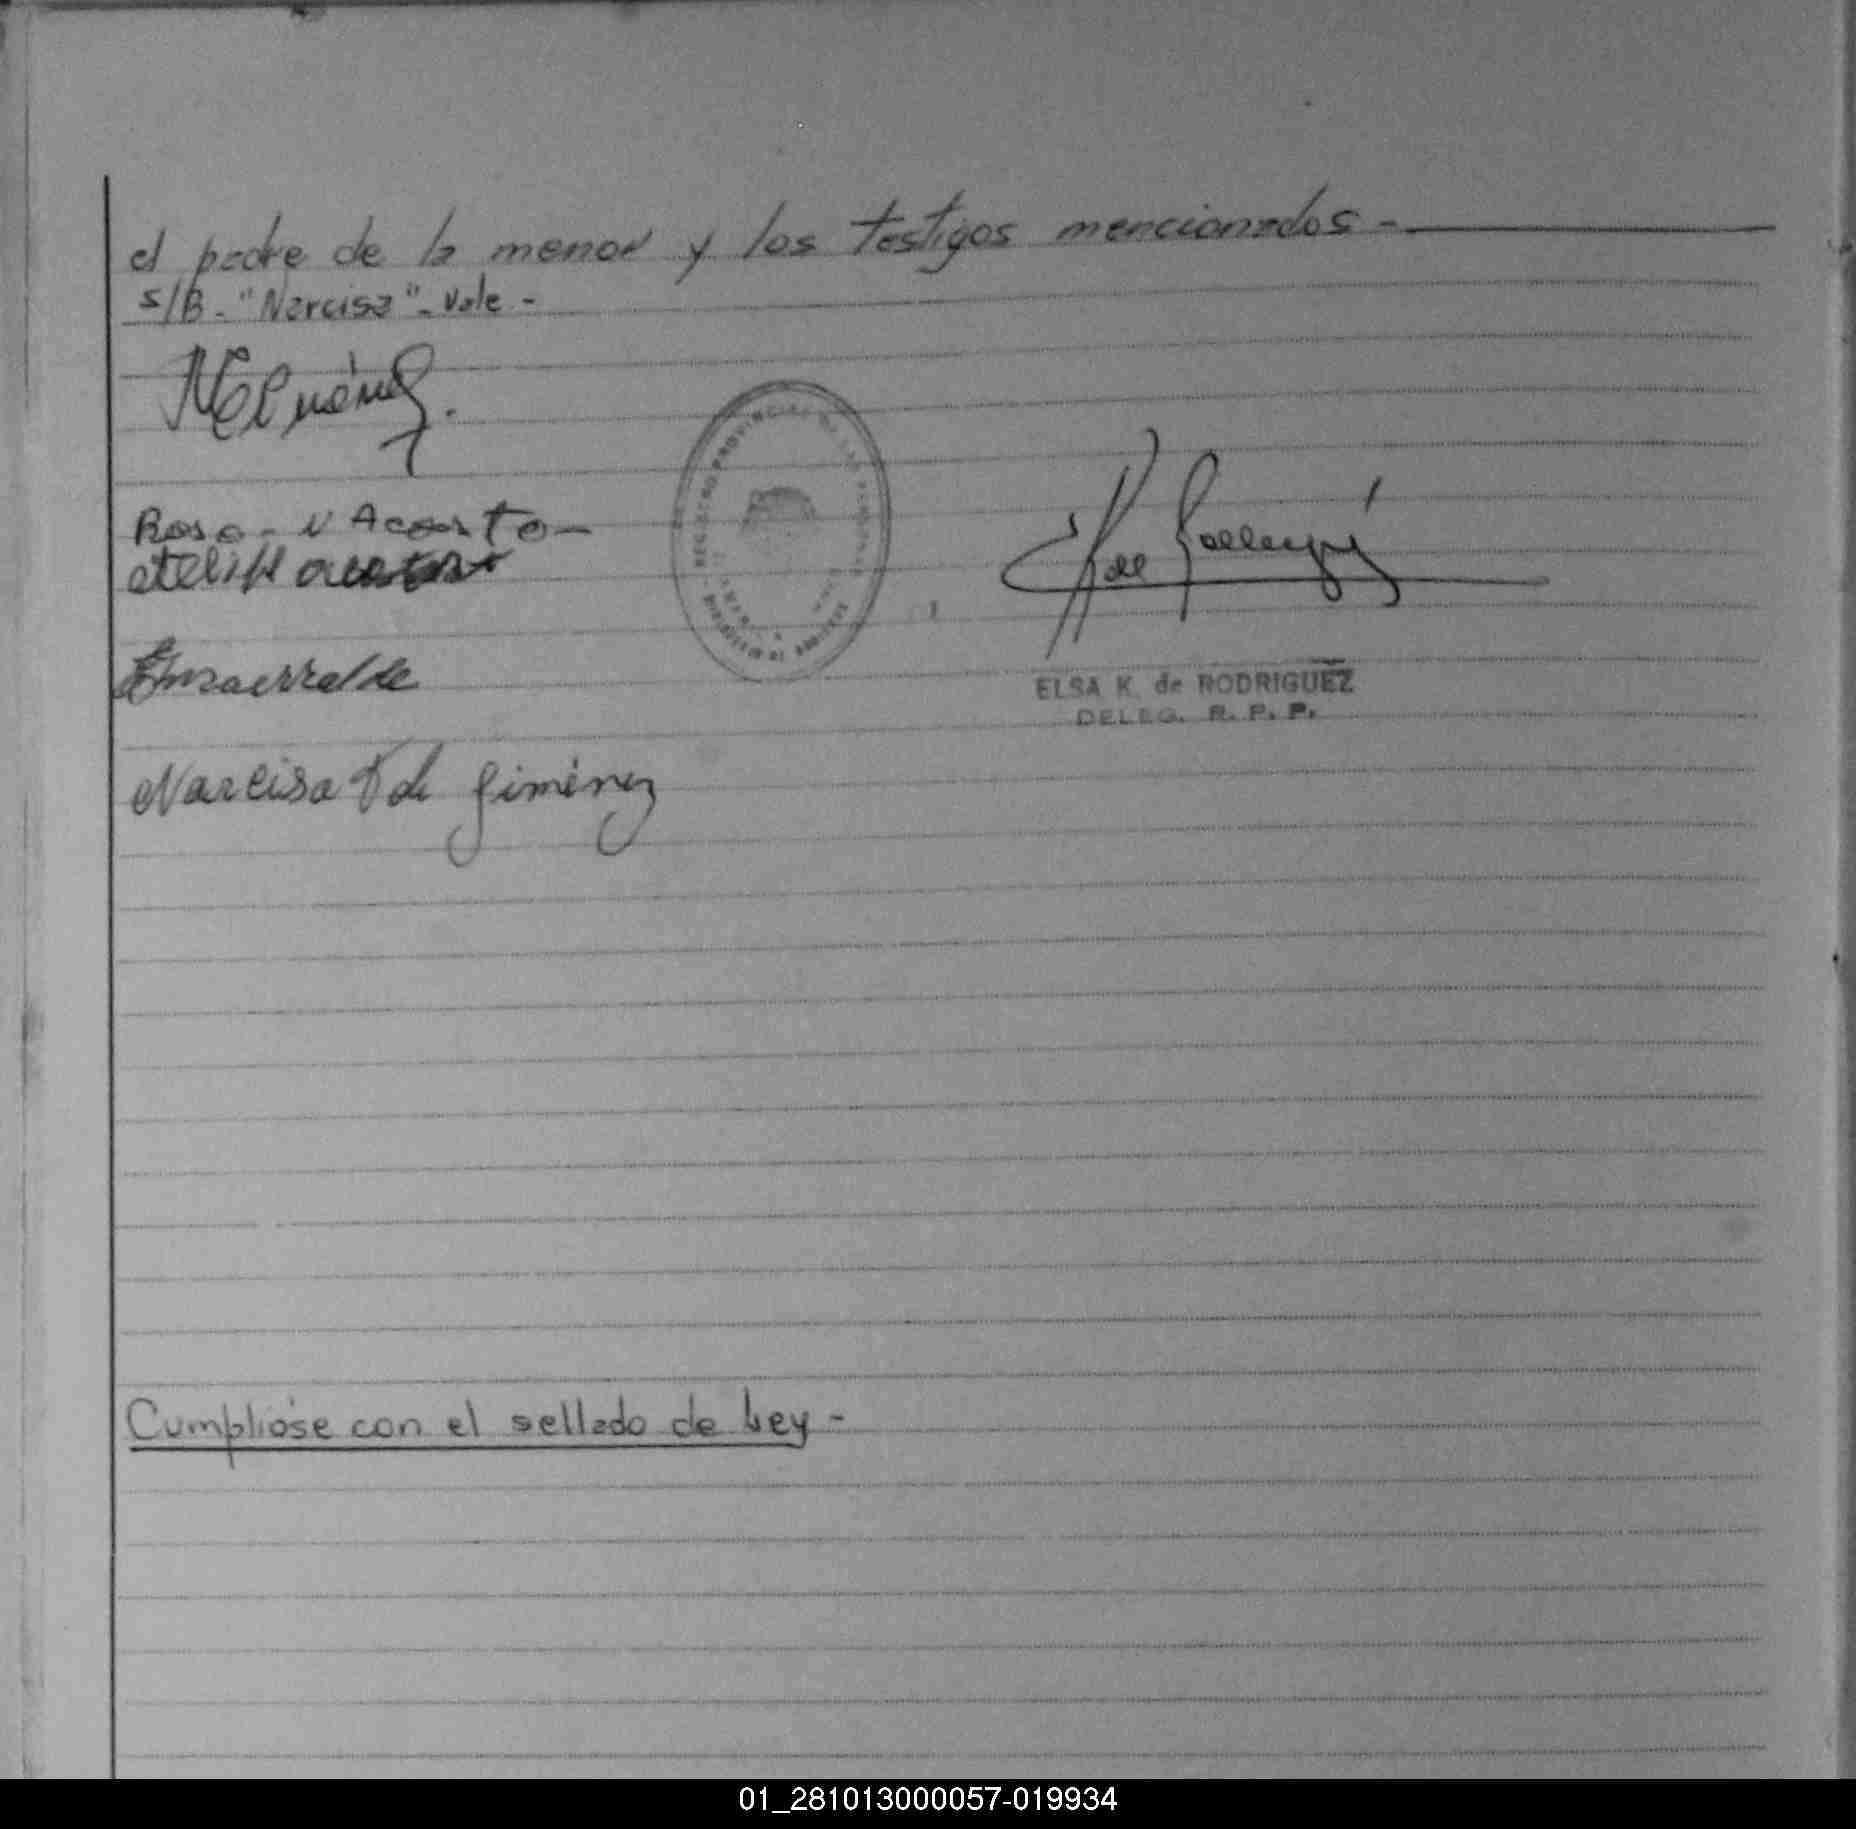 el padre de la menor y los testigos mencionados -
s/B - "Narcisa" - Vale -
Rosa - V Acosta -
REGISTRO PROVINCIAL DE LAS PERSONAS
ELSA K. de RODRIGUEZ
DELEG. R. P. P.
Narcisa de Giménez
Cumplióse con el sellado de Ley -
01_281013000057-019934